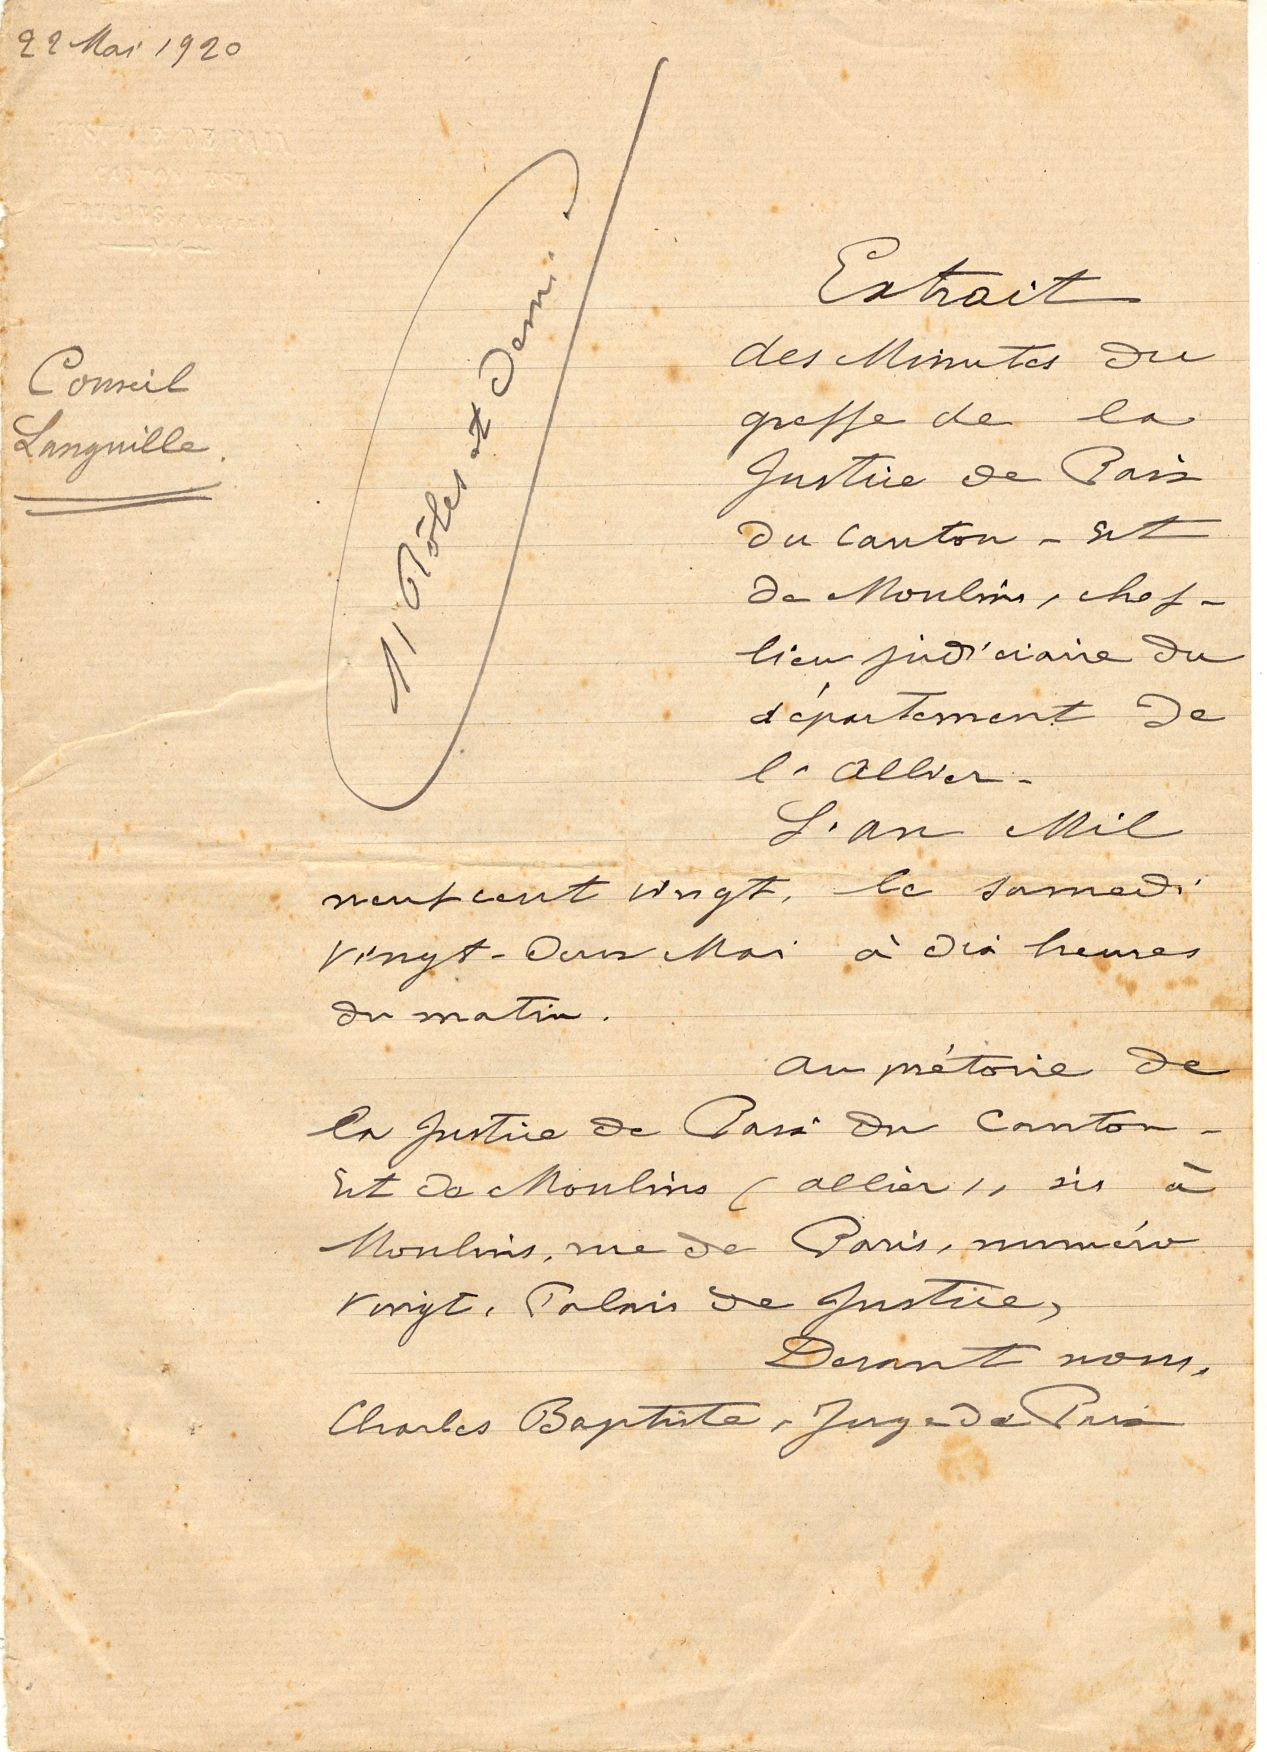 22 Mai 1920
Conseil
Languille.
11 Rôles et Demi.
Extrait
des Minutes du
greffe de la
Justice de Paix
du canton - Est
de Moulins, chef-
lieu judiciaire du
département de
l'Allier -
L'an Mil
neuf cent vingt, le samedi
vingt-deux Mai à dix heures
du matin.
au prétoire de
la Justice de Paix du Canton -
Est de Moulins (allier), sis à
Moulins, rue de Paris, numéro
vingt, Palais de Justice,
Devant nous,
Charles Baptiste, Juge de Paix